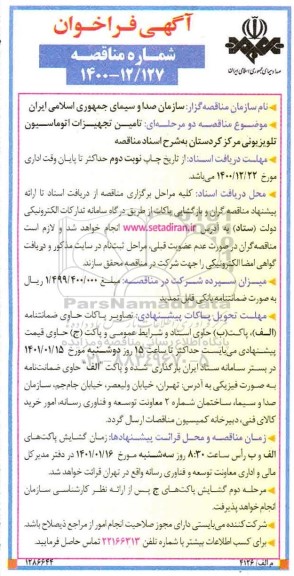 آگهی فراخوان
شماره مناقصه
۱۴۰۰-۱۲/۱۲۷
صدا و سیمای جمهوری اسلامی ایران
نام سازمان مناقصه‌گزار: سازمان صدا و سیمای جمهوری اسلامی ایران
موضوع مناقصه دو مرحله‌ای: تامین تجهیزات اتوماسیون
تلویزیونی مرکز کردستان به‌شرح اسناد مناقصه
مهلت دریافت اسناد: از تاریخ چاپ نوبت دوم حداکثر تا پایان وقت اداری
مورخ ۱۴۰۰/۱۲/۲۲ می‌باشد.
محل دریافت اسناد: کلیه مراحل برگزاری مناقصه از دریافت اسناد تا ارائه
پیشنهاد مناقصه گران و بازگشایی پاکات از طریق درگاه سامانه تدارکات الکترونیکی
دولت (ستاد) به آدرس www.setadiran.ir انجام خواهد شد و لازم است
مناقصه‌گران در صورت عدم عضویت قبلی، مراحل ثبت‌نام در سایت مذکور و دریافت
گواهی امضا الکترونیکی را جهت شرکت در مناقصه محقق سازند.
میزان سپرده شرکت در مناقصه: مبلغ ۱/۴۹۹/۴۰۰/۰۰۰ ریال
به صورت ضمانتنامه بانکی قابل تمدید
مهلت تحویل پاکات پیشنهادی: تصاویر پاکات حاوی ضمانتنامه
(الف)، پاکت(ب) حاوی اسناد و شرایط عمومی و پاکت (ج) حاوی قیمت
پیشنهادی می‌بایست حداکثر تا ساعت ۱۵ روز دوشنبه مورخ ۱۴۰۱/۰۱/۱۵
در بستر سامانه ستاد ایران بارگذاری شده و پاکت "الف" حاوی ضمانت‌نامه
به صورت فیزیکی به آدرس: تهران، خیابان ولیعصر، خیابان جام‌جم، سازمان
صدا و سیما، ساختمان شماره ۲ معاونت توسعه و فناوری رسانه، امور خرید
کالای فنی، دبیرخانه کمیسیون مناقصات ارسال گردد.
زمان مناقصه و محل قرائت پیشنهادها: زمان گشایش پاکت‌های
الف و ب رأس ساعت ۸:۳۰ روز سه‌شنبه مورخ ۱۴۰۱/۰۱/۱۶ در دفتر مدیر کل
مالی و اداری معاونت توسعه و فناوری رسانه واقع در تهران قرائت خواهد شد.
مرحله دوم گشایش پاکت‌های ج پس از ارائه نظر کارشناسی سازمان
انجام خواهد پذیرفت.
شرکت کننده می‌بایستی دارای مجوز صلاحیت انجام امور از مراجع ذیصلاح باشد.
برای کسب اطلاعات بیشتر با شماره تلفن ۲۲۱۶۶۳۱۳ تماس حاصل فرمایید.
م الف/ ۴۱۲۶
۱۲۸۶۶۴۴